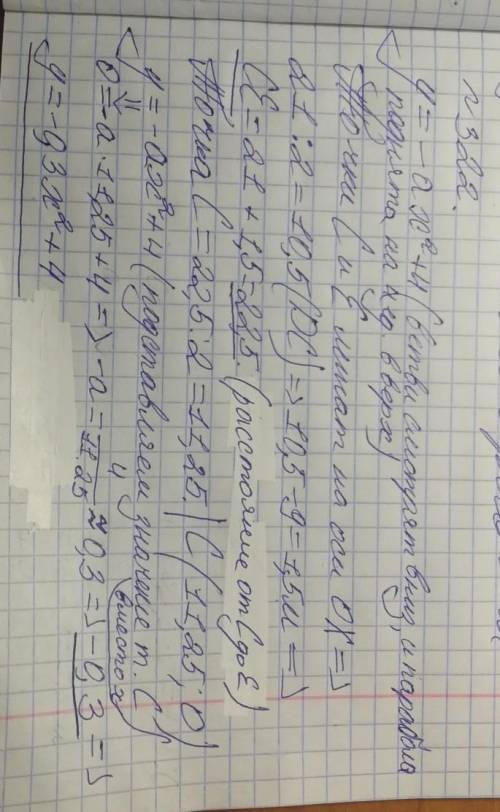 № 322.
y = -ax² + 4 (ветви смотрят вниз, и парабола
поднята на 4 ед. вверх)
Точки C и E лежат на оси OX =>
21 : 2 = 10,5 (DC) => 10,5 - 9 = 1,5м =>
CE = 21 + 1,5 = 22,5. (расстояние от C до E)
Точка C = 22,5 : 2 = 11,25. | C (11,25; 0)
y = -ax² + 4 (подставляем значение т. C
вместо x)
⇓
0 = -a · 11,25 + 4 => -a = 4/11,25 ≈ 0,3 => -0,3 =>
y = -0,3x² + 4